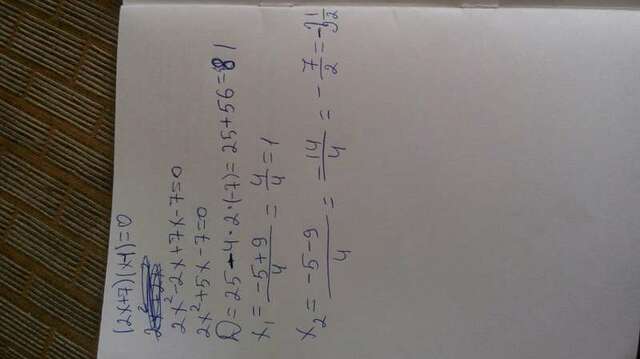 (2x+7)(x-1)=0
2x²-2x+7x-7=0
2x²+5x-7=0
D=25-4·2·(-7)=25+56=81
x₁=(-5+9)/4=4/4=1
x₂=(-5-9)/4=-14/4=-7/2=-3 1/2